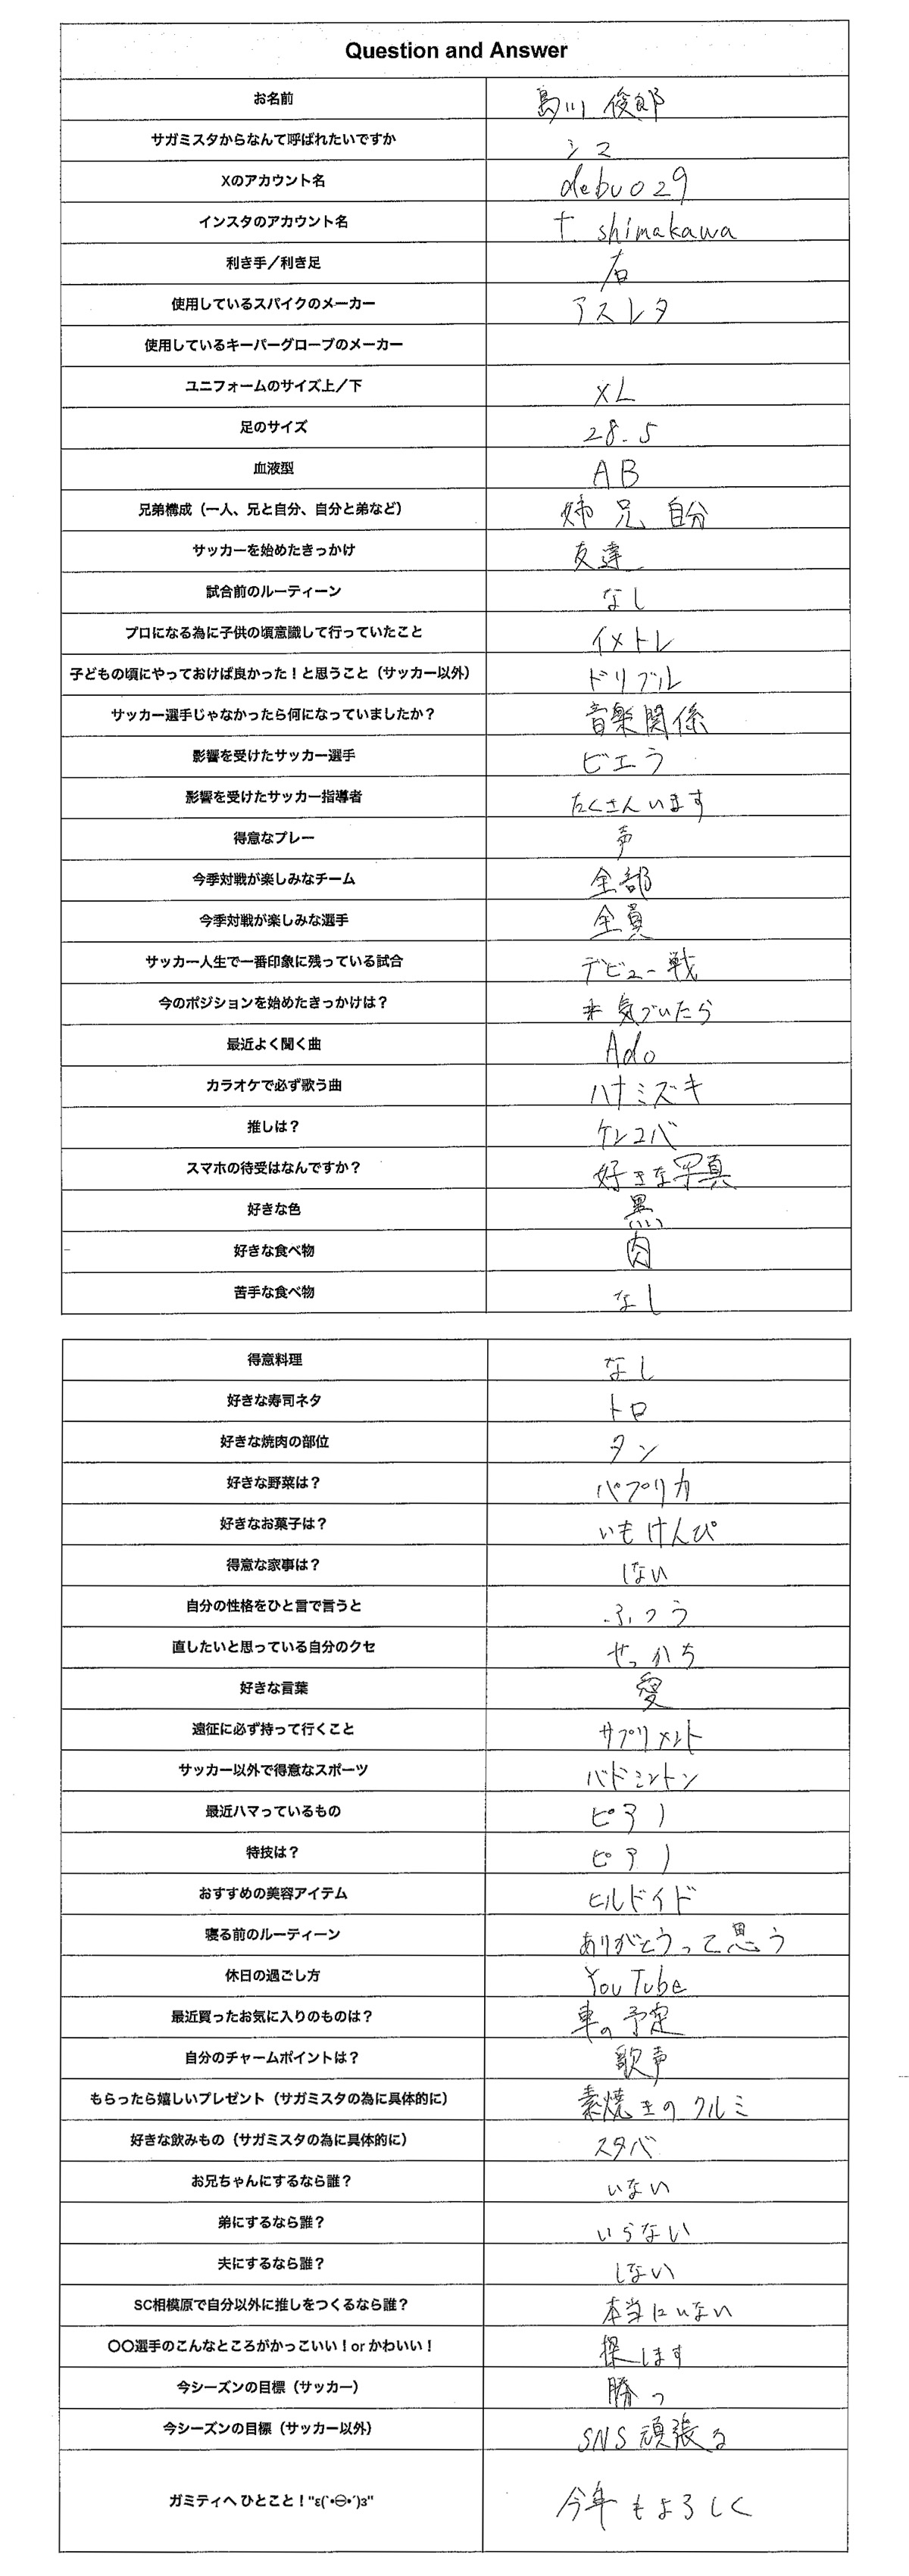 Question and Answer
お名前 島川 俊郎
サガミスタからなんて呼ばれたいですか シマ
Xのアカウント名 debuo29
インスタのアカウント名 t. shimakawa
利き手／利き足 右
使用しているスパイクのメーカー アスレタ
使用しているキーパーグローブのメーカー
ユニフォームのサイズ上／下 XL
足のサイズ 28.5
血液型 AB
兄弟構成（一人、兄と自分、自分と弟など） 姉 兄、自分
サッカーを始めたきっかけ 友達
試合前のルーティーン なし
プロになる為に子供の頃意識して行っていたこと イメトレ
子どもの頃にやっておけば良かった！と思うこと（サッカー以外） ドリブル
サッカー選手じゃなかったら何になっていましたか？ 音楽関係
影響を受けたサッカー選手 ビエラ
影響を受けたサッカー指導者 たくさんいます
得意なプレー 声
今季対戦が楽しみなチーム 全部
今季対戦が楽しみな選手 全員
サッカー人生で一番印象に残っている試合 デビュー戦
今のポジションを始めたきっかけは？ 気づいたら
最近よく聞く曲 Ado
カラオケで必ず歌う曲 ハナミズキ
推しは？ ケンコバ
スマホの待受はなんですか？ 好きな写真
好きな色 黒
好きな食べ物 肉
苦手な食べ物 なし
得意料理 なし
好きな寿司ネタ トロ
好きな焼肉の部位 タン
好きな野菜は？ パプリカ
好きなお菓子は？ いもけんぴ
得意な家事は？ しない
自分の性格をひと言で言うと ふつう
直したいと思っている自分のクセ せっかち
好きな言葉 愛
遠征に必ず持って行くこと サプリメント
サッカー以外で得意なスポーツ バドミントン
最近ハマっているもの ピアノ
特技は？ ピアノ
おすすめの美容アイテム ヒルドイド
寝る前のルーティーン ありがとうって思う
休日の過ごし方 YouTube
最近買ったお気に入りのものは？ 車の予定
自分のチャームポイントは？ 歌声
もらったら嬉しいプレゼント（サガミスタの為に具体的に） 素焼きのクルミ
好きな飲みもの（サガミスタの為に具体的に） スタバ
お兄ちゃんにするなら誰？ いない
弟にするなら誰？ いらない
夫にするなら誰？ しない
SC相模原で自分以外に推しをつくるなら誰？ 本当にいない
〇〇選手のこんなところがかっこいい！or かわいい！ 探します
今シーズンの目標（サッカー） 勝つ
今シーズンの目標（サッカー以外） SNS 頑張る
ガミティへ ひとこと！"ε(´•㊀•｀)з" 今年もよろしく